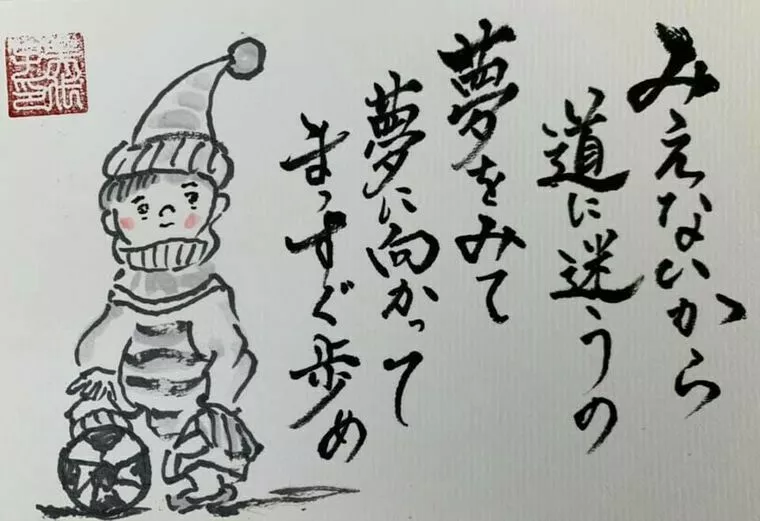 みえないから
道に迷うの
夢をみて
夢に向かって
まっすぐ歩め